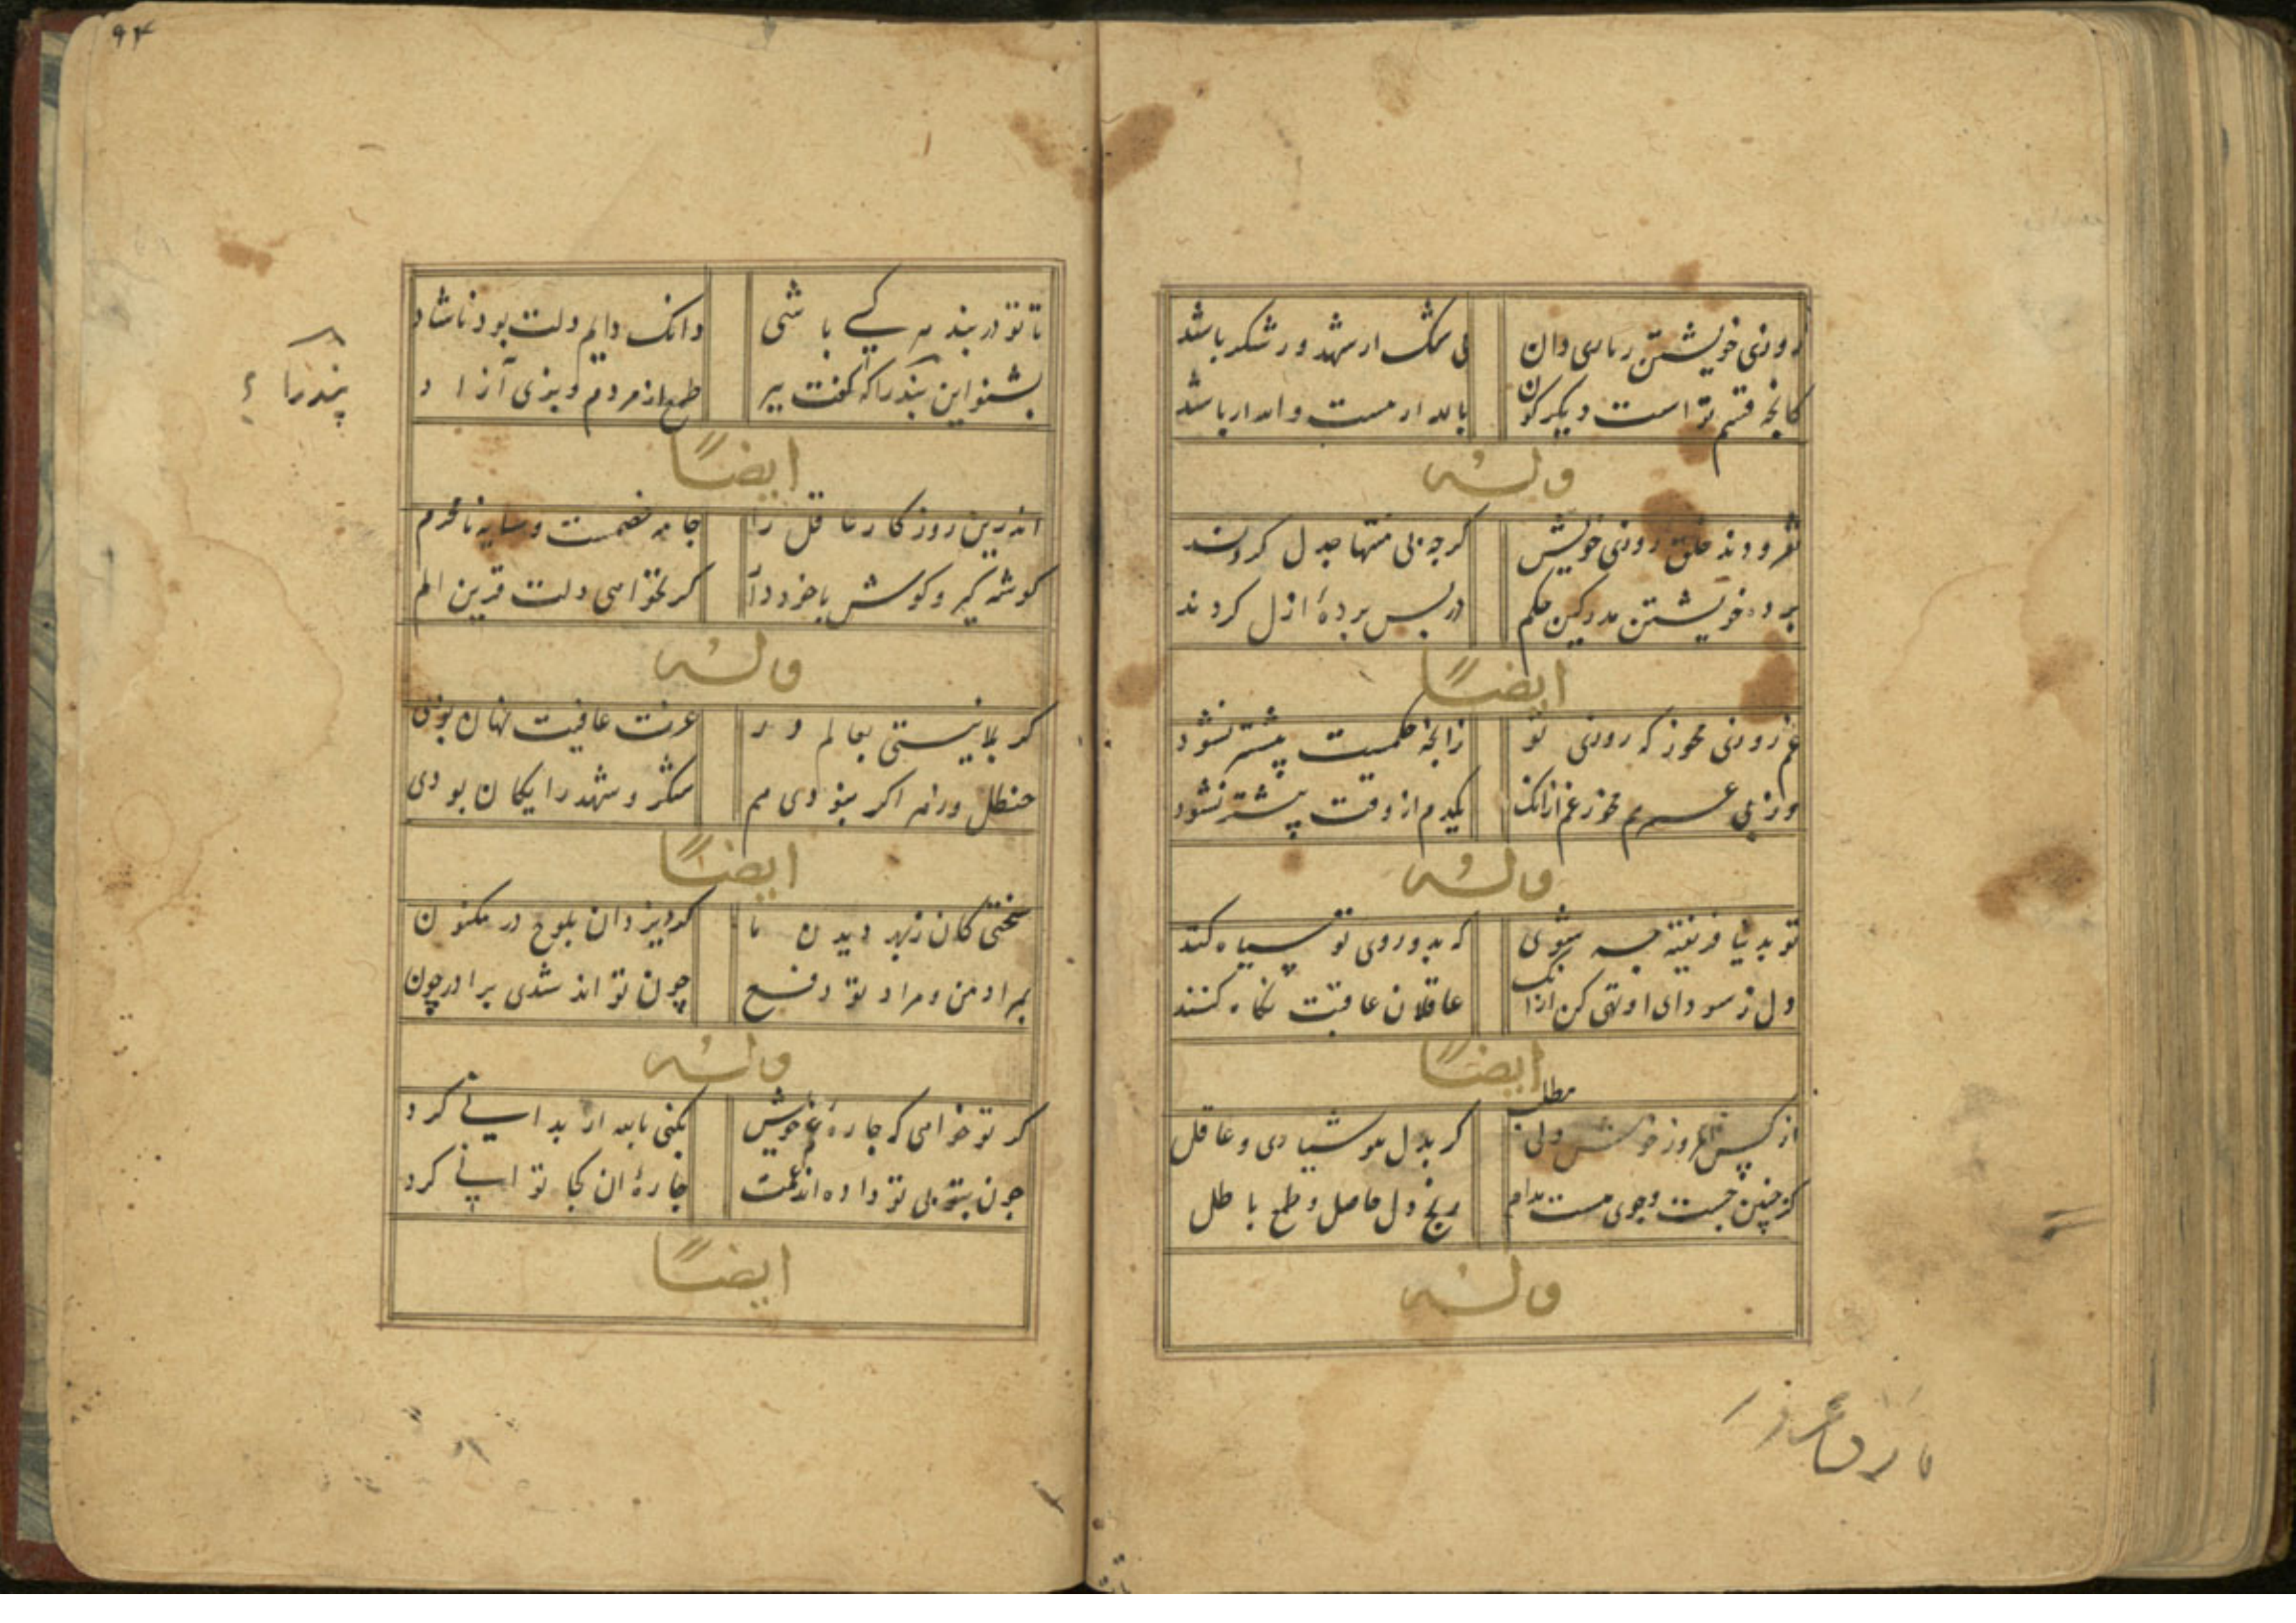 روزی خویشتن ... دان
بی شک ار شهد ور شکر باشد
کانچه قسم تو است دیکرکون
... باشد
وله
... خلق روزی خویش
کرچه بی منتها جدل کردند
... خویشتن ... کین حکم
در پس پردهٔ ازل کردند
ایضاً
غم روزی مخور که روزی تو
زانچه حکمست بیشتر نشود
وز پی عمر هم مخور غم ازانک
یکدم از وقت پیشتر نشود
وله
تو بدنیا فریفته چه شوی
که بدو روی تو سیاه کند
دل ز سودای او تهی کن ازانک
عاقلان عاقبت نکاه کنند
ایضاً
از کس امروز ... ولی مطلب
کر بدل هوشیاری و عاقل
کز چنین جست وجوی هست مدام
رنج دل حاصل و طمع باطل
وله
۹۴
تا تو در بند هر کسے باشی
دانک دایم دلت بود ناشاد
بشنو این پندرا که کفت پیر
طمع از مردم و بزی آزاد
پندرا
ایضاً
اندرین روزکار عاقل را
جامه خصمست و سایه نامحرم
کوشه کیر و کوش با خود دآ
کر نخواهی دلت قرین الم
وله
کر بلا نیستی بعالم در
عزت عافیت نهان بودی
حنظل و زهر اکر نبودی هم
شکر و شهد رایکان بودی
ایضاً
سختی کان ز بهر دیدن ما
کرد یزدان بلوح در مکنون
بمراد من و مراد تو دفع
چون تواند شدی برادر چون
وله
کر تو خواهی که چارهٔ غم خویش
بکنی ... کرد
چون بتو بی تو داده اند غمت
چارهٔ ان کجا توانے کرد
ایضاً